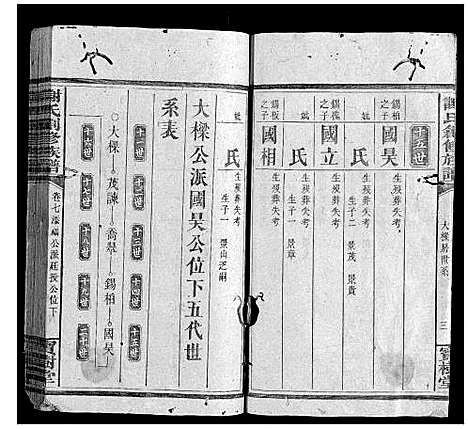 十五世
錫柏之子
國昊
生歿葬失考
妣
氏
生歿葬失考
生子二 景茂 景貴
錫槐之子
國立
生歿葬失考
妣
氏
生歿葬失考
生子一 景章
錫板之子
國相
生歿葬失考
妣
氏
生歿葬失考
生子一 景山 乏嗣
大樑世系
三
寶樹堂
大樑公派國昊公位下五代世
系表
十一世
十二世
十三世
十四世
十五世
大樑
茂諫
喬翠
錫柏
國昊
十六世
十七世
十八世
十九世
二十世
謝氏 修族譜
公派廷 公位下
寶樹堂